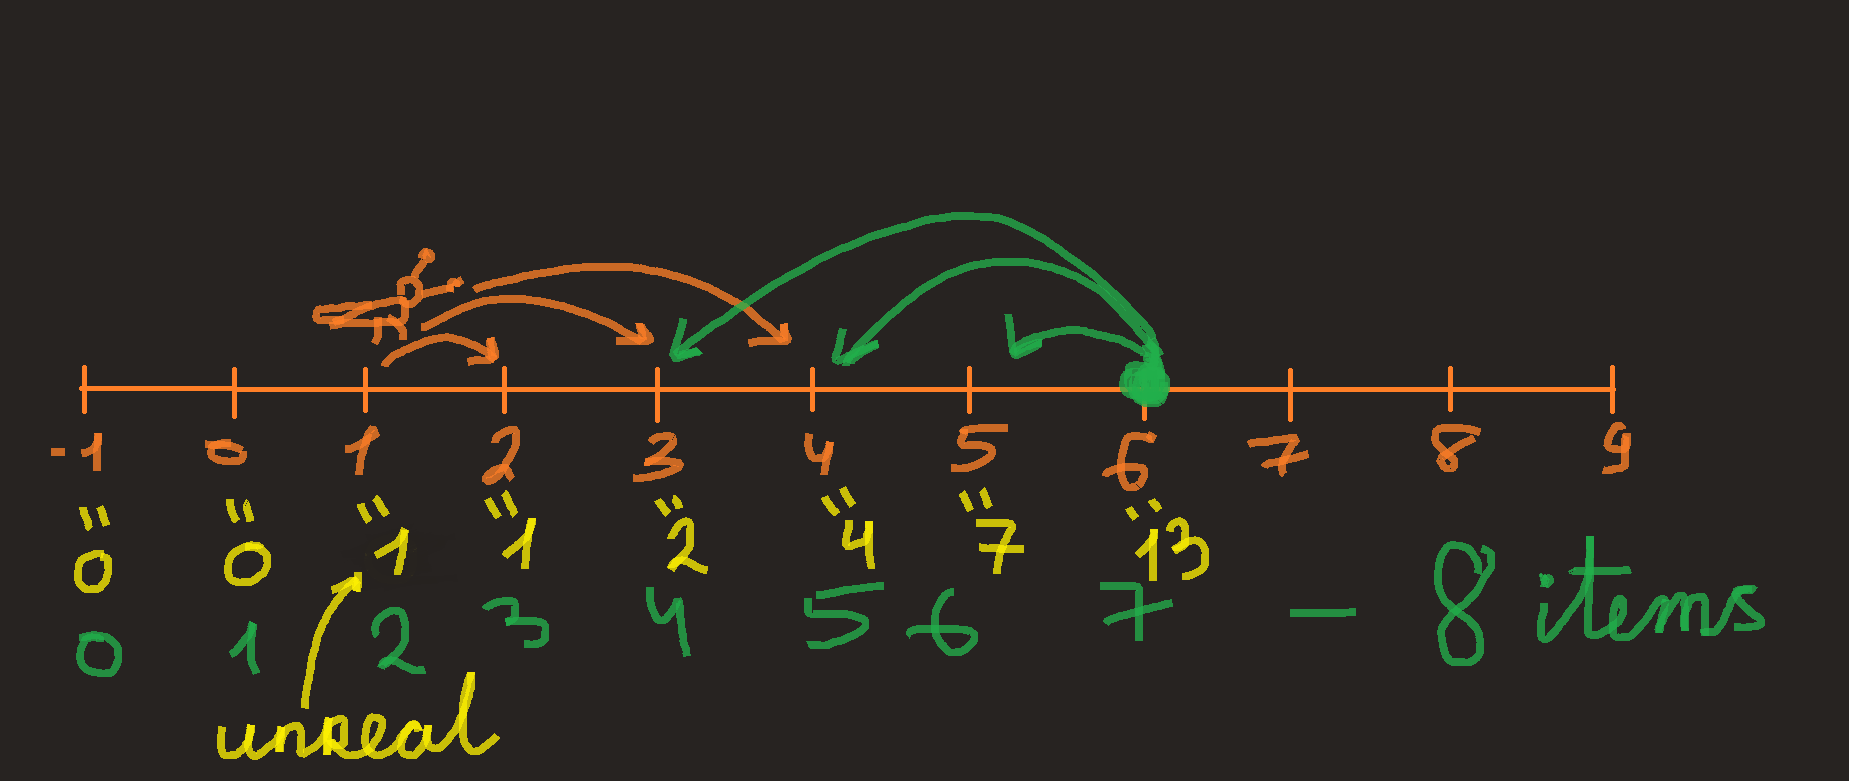 -1 0 1 2 3 4 5 6 7 8 9
" " " " " " " "
0 0 1 1 2 4 7 13
0 1 2 3 4 5 6 7 - 8 items
unreal